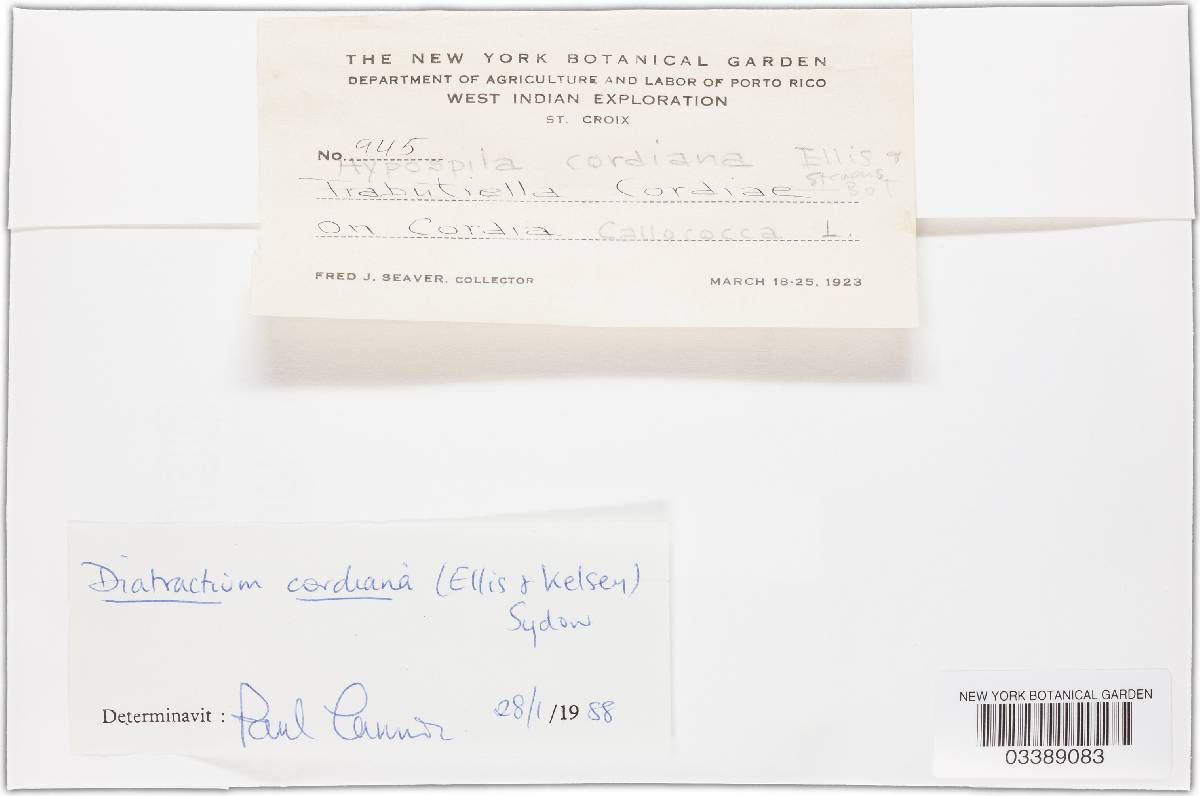 THE NEW YORK BOTANICAL GARDEN
DEPARTMENT OF AGRICULTURE AND LABOR OF PORTO RICO
WEST INDIAN EXPLORATION
ST. CROIX
No. 945
Hypospila cordiana Ellis &
Trabutiella Cordiae
On Cordia Callococca L.
FRED J. SEAVER, COLLECTOR MARCH 18-25, 1923
Diatractium cordianà (Ellis & Kelsey)
Sydow
Determinavit : Paul Cannon 28/1/1988
NEW YORK BOTANICAL GARDEN
03389083